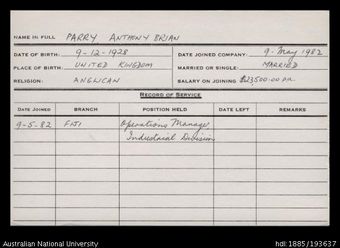 NAME IN FULL PARRY ANTHONY BRIAN
DATE OF BIRTH: 9-12-1928 DATE JOINED COMPANY: 9-May 1982
PLACE OF BIRTH: UNITED KINGDOM MARRIED OR SINGLE: MARRIED
RELIGION: ANGLICAN SALARY ON JOINING $23500.00 p.a.
RECORD OF SERVICE
DATE JOINED BRANCH POSITION HELD DATE LEFT REMARKS
9-5-82 FIJI Operations Manager
Industrial Division
Australian National University hdl:1885/193637